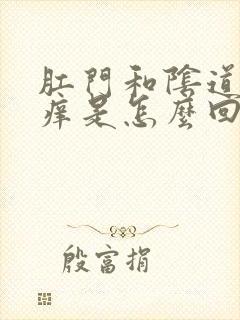 肛門和陰道
痒是怎麼回
殷富捐